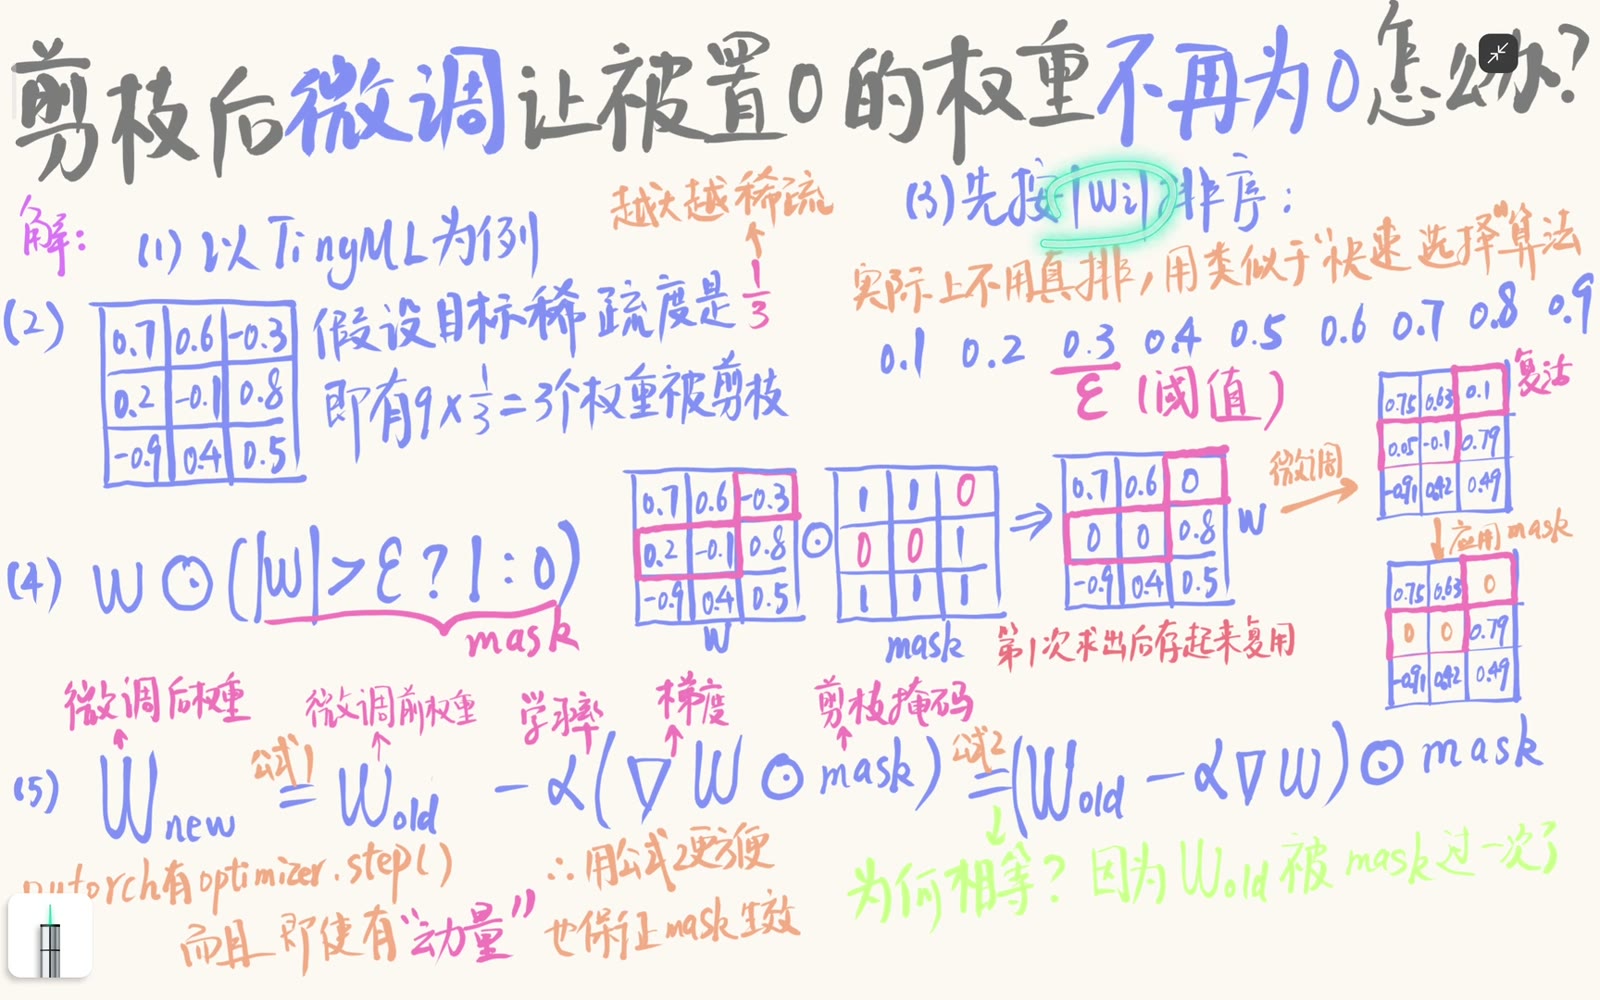 剪枝后微调让被置0的权重不再为0怎么办?
解: (1) 以TinyML为例
越大越稀疏
(2)
0.7 0.6 -0.3
0.2 -0.1 0.8
-0.9 0.4 0.5
假设目标稀疏度是1/3
即有9×1/3=3个权重被剪枝
(3)先按|Wi|排序:
实际上不用真排,用类似于"快速选择"算法
0.1 0.2 0.3 0.4 0.5 0.6 0.7 0.8 0.9
ε (阈值)
(4) W⊙(|W|>ε?1:0)
mask
0.7 0.6 -0.3
0.2 -0.1 0.8
-0.9 0.4 0.5
W
⊙
1 1 0
0 0 1
1 1 1
mask
⇒
0.7 0.6 0
0 0 0.8
-0.9 0.4 0.5
W
第1次求出后存起来复用
微调
→
复活
0.75 0.63 0.1
0.05 -0.1 0.79
-0.91 0.42 0.49
↓应用mask
0.75 0.63 0
0 0 0.79
-0.91 0.42 0.49
微调后权重 微调前权重 学习率 梯度 剪枝掩码
公式1 公式2
(5) Wnew = Wold - α(∇W⊙mask) = (Wold - α∇W)⊙mask
pytorch有optimizer.step()
∴用公式2更方便
而且即使有"动量"
也保证mask生效
为何相等? 因为Wold被mask过一次了